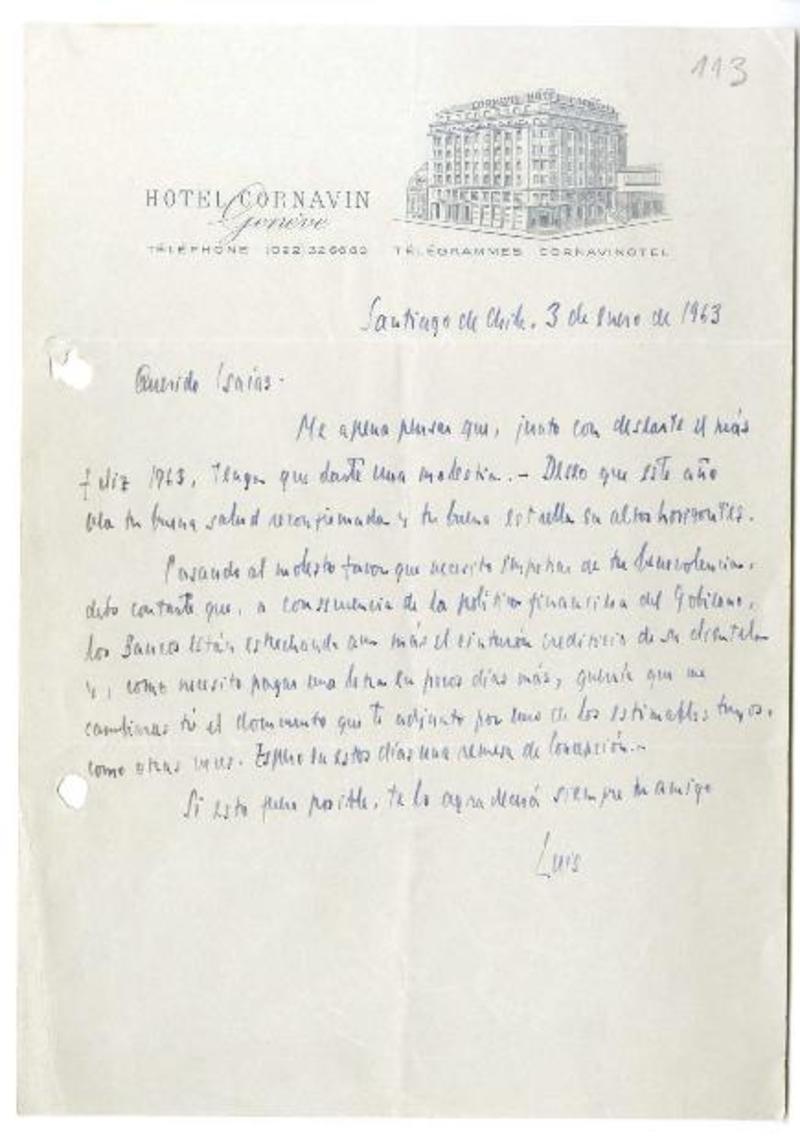 113
CORNAVIN HOTEL CORNAVIN
HOTEL CORNAVIN
Genève
TÉLÉPHONE (022) 326660 TÉLÉGRAMMES CORNAVINOTEL
Santiago de Chile, 3 de Enero de 1963
Querido Isaías.
Me apena pensar que, junto con desearte el más
feliz 1963, tenga que darte una molestia. - Deseo que este año
vea tu buena salud reconfirmada y tu buena estrella en altos horizontes.
Pasando al modesto favor que necesito impetrar de tu benevolencia,
debo contarte que, a consecuencia de la política financiera del Gobierno,
los Bancos están estrechando aun más el cinturón crediticio de su clientela
y, como necesito pagar una letra en pocos días más, quería que me
cambiaras tú el documento que te adjunto por uno de los estimables tuyos,
como otras veces. Espero en estos días una remesa de Concepción. -
Si esto fuera posible, te lo agradecerá siempre tu amigo
Luis